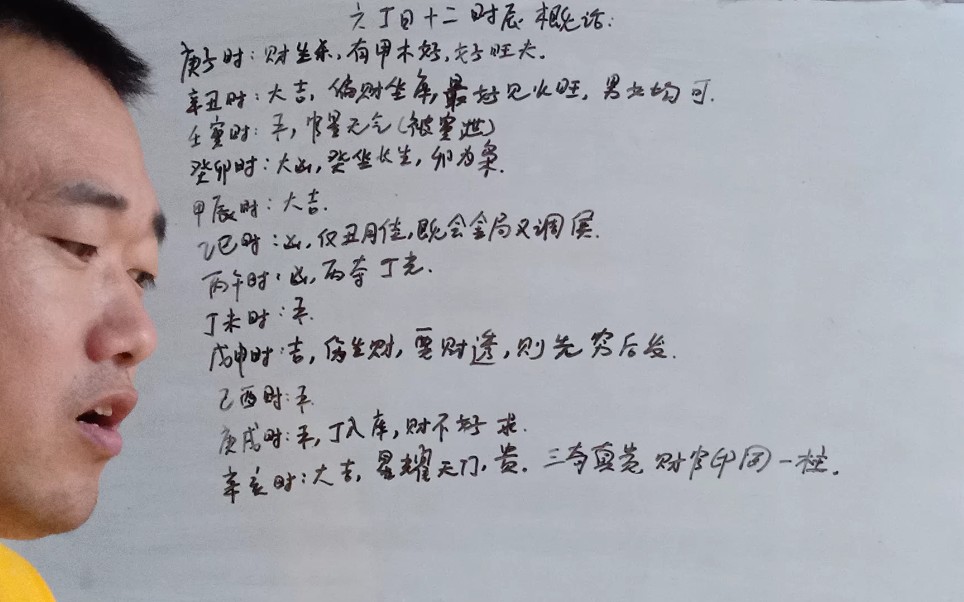 六丁日十二时辰概论:
庚子时:财坐杀,有甲木好,好旺夫.
辛丑时:大吉,偏财坐库,最好见火旺,男女均可.
壬寅时:平,官星无气(被寅泄)
癸卯时:大凶,癸坐长生,卯为枭.
甲辰时:大吉.
乙巳时:凶,仅丑月佳,既会金局又调候.
丙午时:凶,丙夺丁光.
丁未时:平.
戊申时:吉,伤生财,要财透,则先穷后发.
己酉时:平.
庚戌时:平,丁入库,财不好求.
辛亥时:大吉,星耀天门,贵.三奇真览 财官印同一柱.